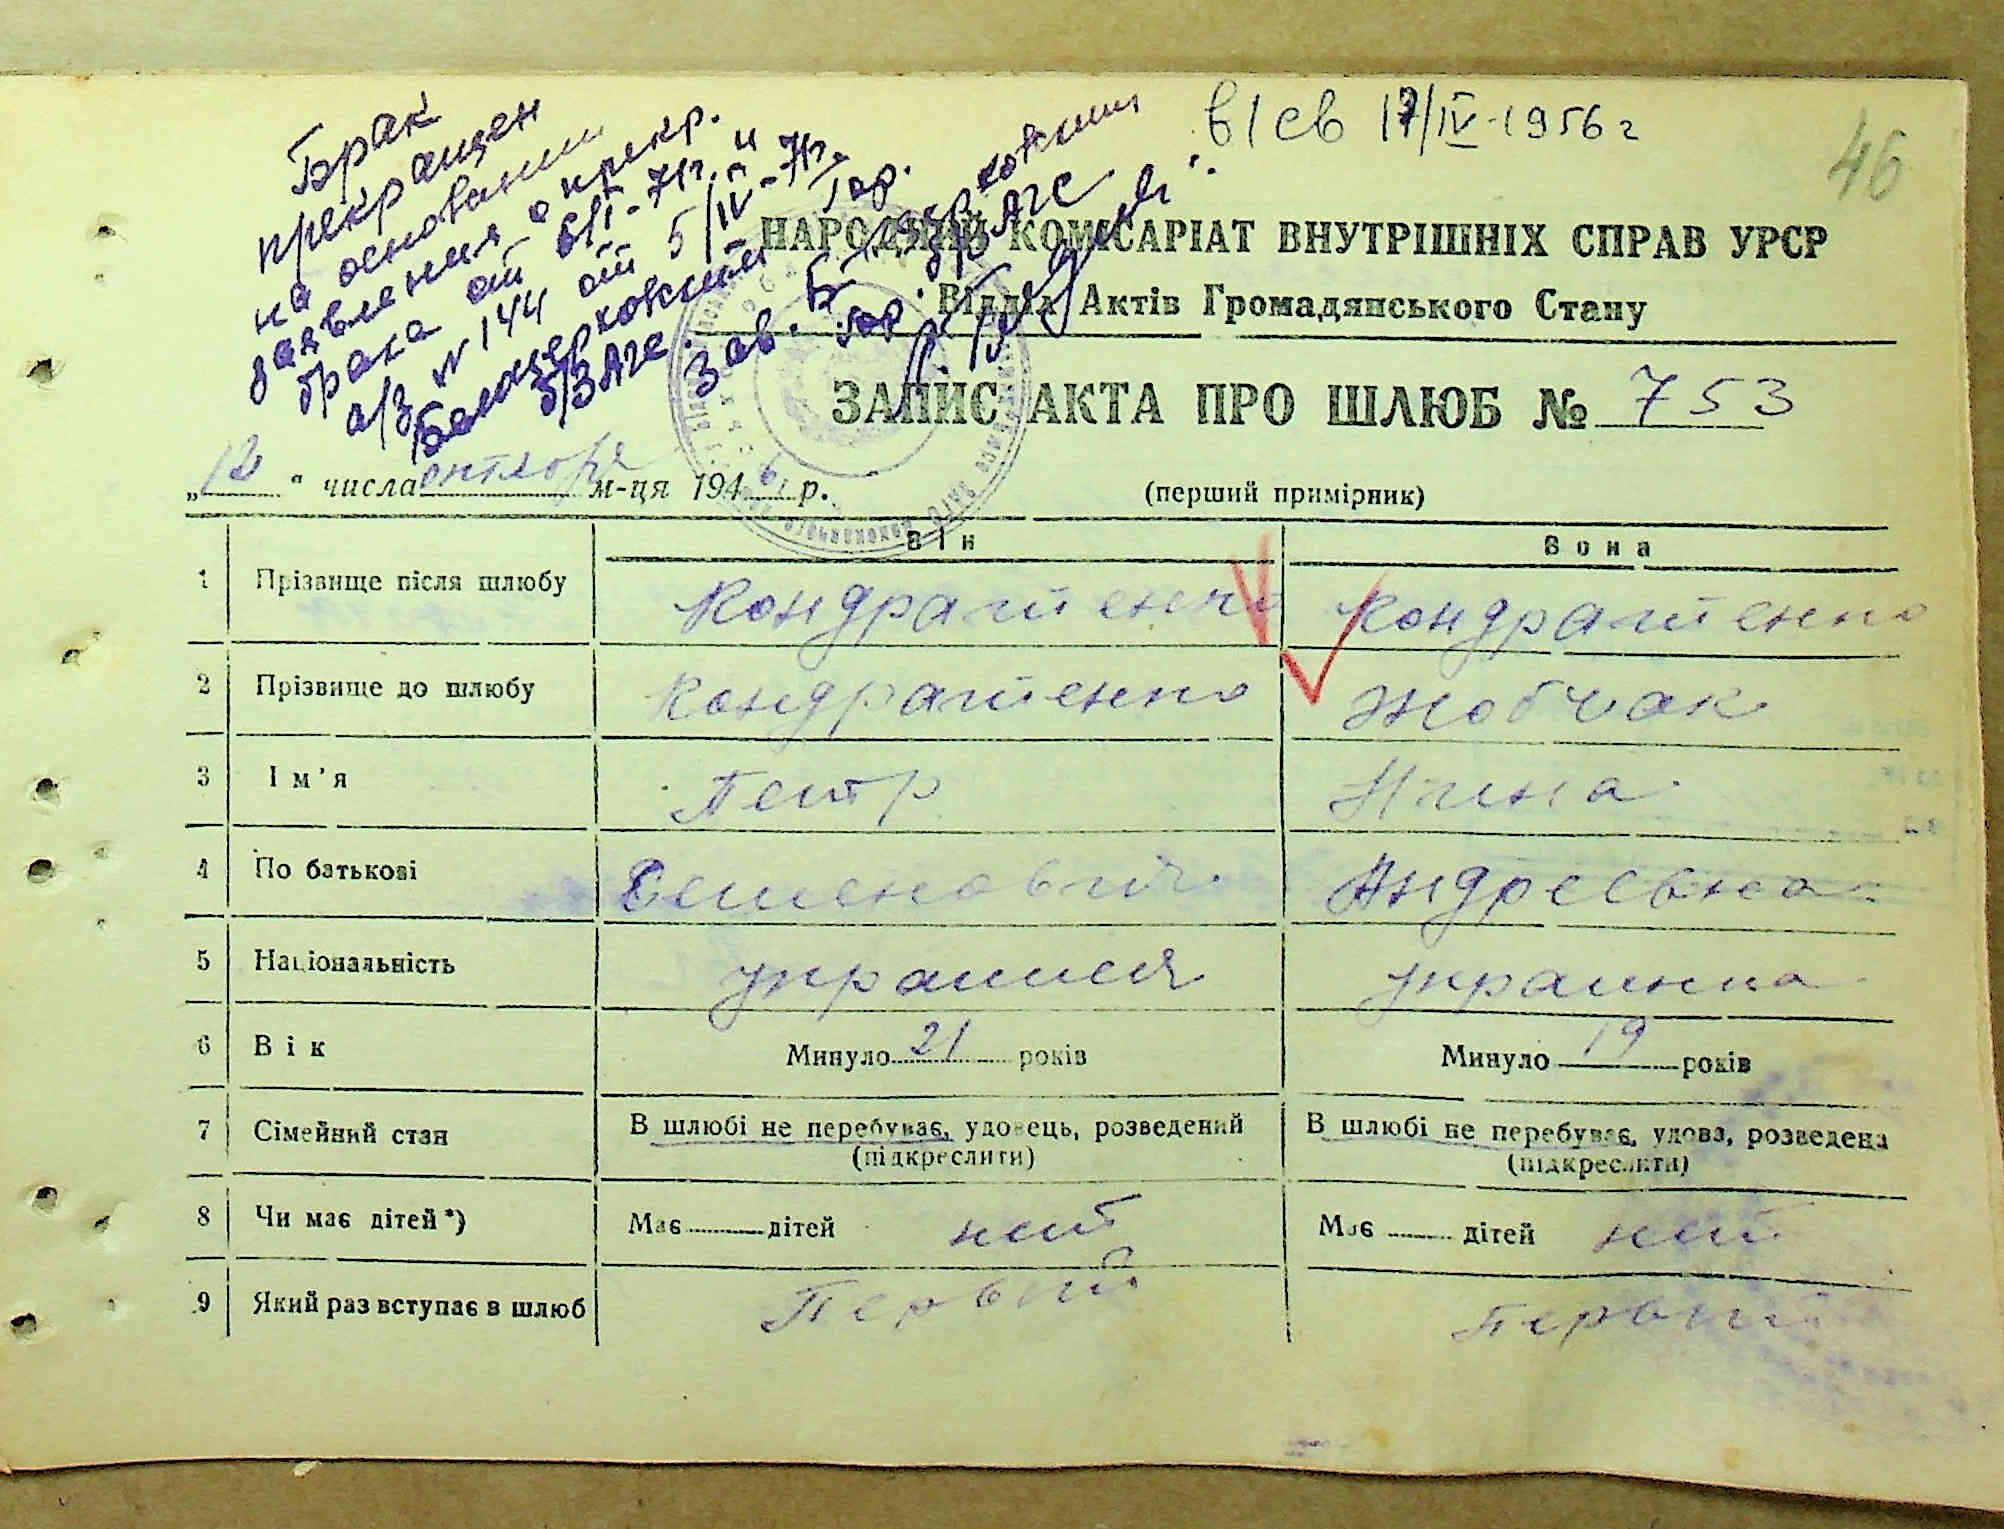 в/св 17/IV-1956 г
46
Брак
прекращен
на основании
заявления о прекр.
брака от 6/I-71г. и
а/з N 144 от 5/IV-71г.
Белоцерковский Гор.
б/ЗАГС.
Зав. Б-Церковским
гор. б/ЗАГС
НАРОДНИЙ КОМІСАРІАТ ВНУТРІШНІХ СПРАВ УРСР
Відділ Актів Громадянського Стану
ЗАПИС АКТА ПРО ШЛЮБ № 753
„12" числа октября м-ця 1946 р. (перший примірник)
Він Вона
1 Прізвище після шлюбу Кондратенко Кондратенко
2 Прізвище до шлюбу Кондратенко Жобчак
3 Ім'я Петр Нина
4 По батькові Семенович Андреевна
5 Національність украинец украинка
6 Вік Минуло 21 років Минуло 19 років
7 Сімейний стан В шлюбі не перебуває, удовець, розведений В шлюбі не перебуває, удова, розведена
(підкреслити) (підкреслити)
8 Чи має дітей*) Має дітей нет Має дітей нет
9 Який раз вступає в шлюб Первый Первый